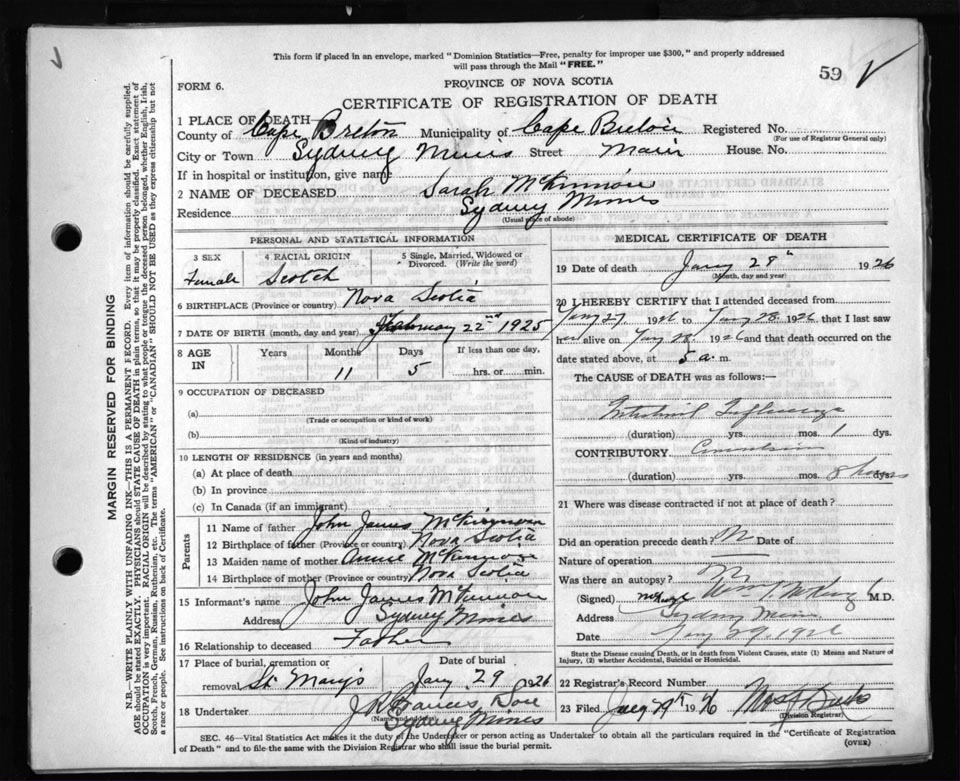 This form if placed in an envelope, marked "Dominion Statistics—Free, penalty for improper use $300," and properly addressed
will pass through the Mail "FREE."
59
FORM 6.
PROVINCE OF NOVA SCOTIA
CERTIFICATE OF REGISTRATION OF DEATH
1 PLACE OF DEATH
County of Cape Breton Municipality of Cape Breton Registered No.
(For use of Registrar General only)
City or Town Sydney Mines Street Main House No.
If in hospital or institution, give name
2 NAME OF DECEASED Sarah McKinnon
Residence Sydney Mines
(Usual place of abode)
PERSONAL AND STATISTICAL INFORMATION
3 SEX 4 RACIAL ORIGIN 5 Single, Married, Widowed or
Divorced. (Write the word)
Female Scotch
6 BIRTHPLACE (Province or country) Nova Scotia
7 DATE OF BIRTH (month, day and year) February 22nd 1925
8 AGE IN Years Months Days If less than one day,
11 5 hrs. or min.
9 OCCUPATION OF DECEASED
(a)
(Trade or occupation or kind of work)
(b)
(Kind of industry)
10 LENGTH OF RESIDENCE (in years and months)
(a) At place of death
(b) In province
(c) In Canada (if an immigrant)
Parents
11 Name of father John James McKinnon
12 Birthplace of father (Province or country) Nova Scotia
13 Maiden name of mother Annie McKinnon
14 Birthplace of mother (Province or country) Nova Scotia
15 Informant's name John James McKinnon
Address Sydney Mines
16 Relationship to deceased Father
17 Place of burial, cremation or Date of burial
removal St Marys Jany 29 1926
18 Undertaker J R Francis Son
(Name and address)
Sydney Mines
MEDICAL CERTIFICATE OF DEATH
19 Date of death Jany 28th 1926
(Month, day and year)
20 I HEREBY CERTIFY that I attended deceased from
Jany 27 1926 to Jany 28 1926 that I last saw
her alive on Jany 28 1926 and that death occurred on the
date stated above, at 5 a. m.
The CAUSE of DEATH was as follows:—
Intestinal Influenza
(duration) yrs. mos. 1 dys.
CONTRIBUTORY Convulsions
(duration) yrs. mos. 8 hours dys.
21 Where was disease contracted if not at place of death?
Did an operation precede death? Date of
Nature of operation
Was there an autopsy?
(Signed) M.D.
Address Sydney Mines
Date Jany 29 1926
State the Disease causing Death, or in death from Violent Causes, state (1) Means and Nature of
Injury, (2) whether Accidental, Suicidal or Homicidal.
22 Registrar's Record Number
23 Filed 1926
(Division Registrar)
SEC. 46—Vital Statistics Act makes it the duty of the Undertaker or person acting as Undertaker to obtain all the particulars required in the "Certificate of Registration
of Death" and to file the same with the Division Registrar who shall issue the burial permit.
(OVER)
MARGIN RESERVED FOR BINDING
N.B.—WRITE PLAINLY WITH UNFADING INK—THIS IS A PERMANENT RECORD. Every item of information should be carefully supplied.
AGE should be stated EXACTLY. PHYSICIANS should STATE CAUSE OF DEATH in plain terms, so that it may be properly classified. Exact statement of
OCCUPATION is very important. RACIAL ORIGIN will be described by stating to what people or tongue the deceased person belonged, whether English, Irish,
Scotch, French, German, Russian, Ruthenian, etc. The terms "AMERICAN" or "CANADIAN" SHOULD NOT BE USED as they express citizenship but not
a race or people. See instructions on back of Certificate.